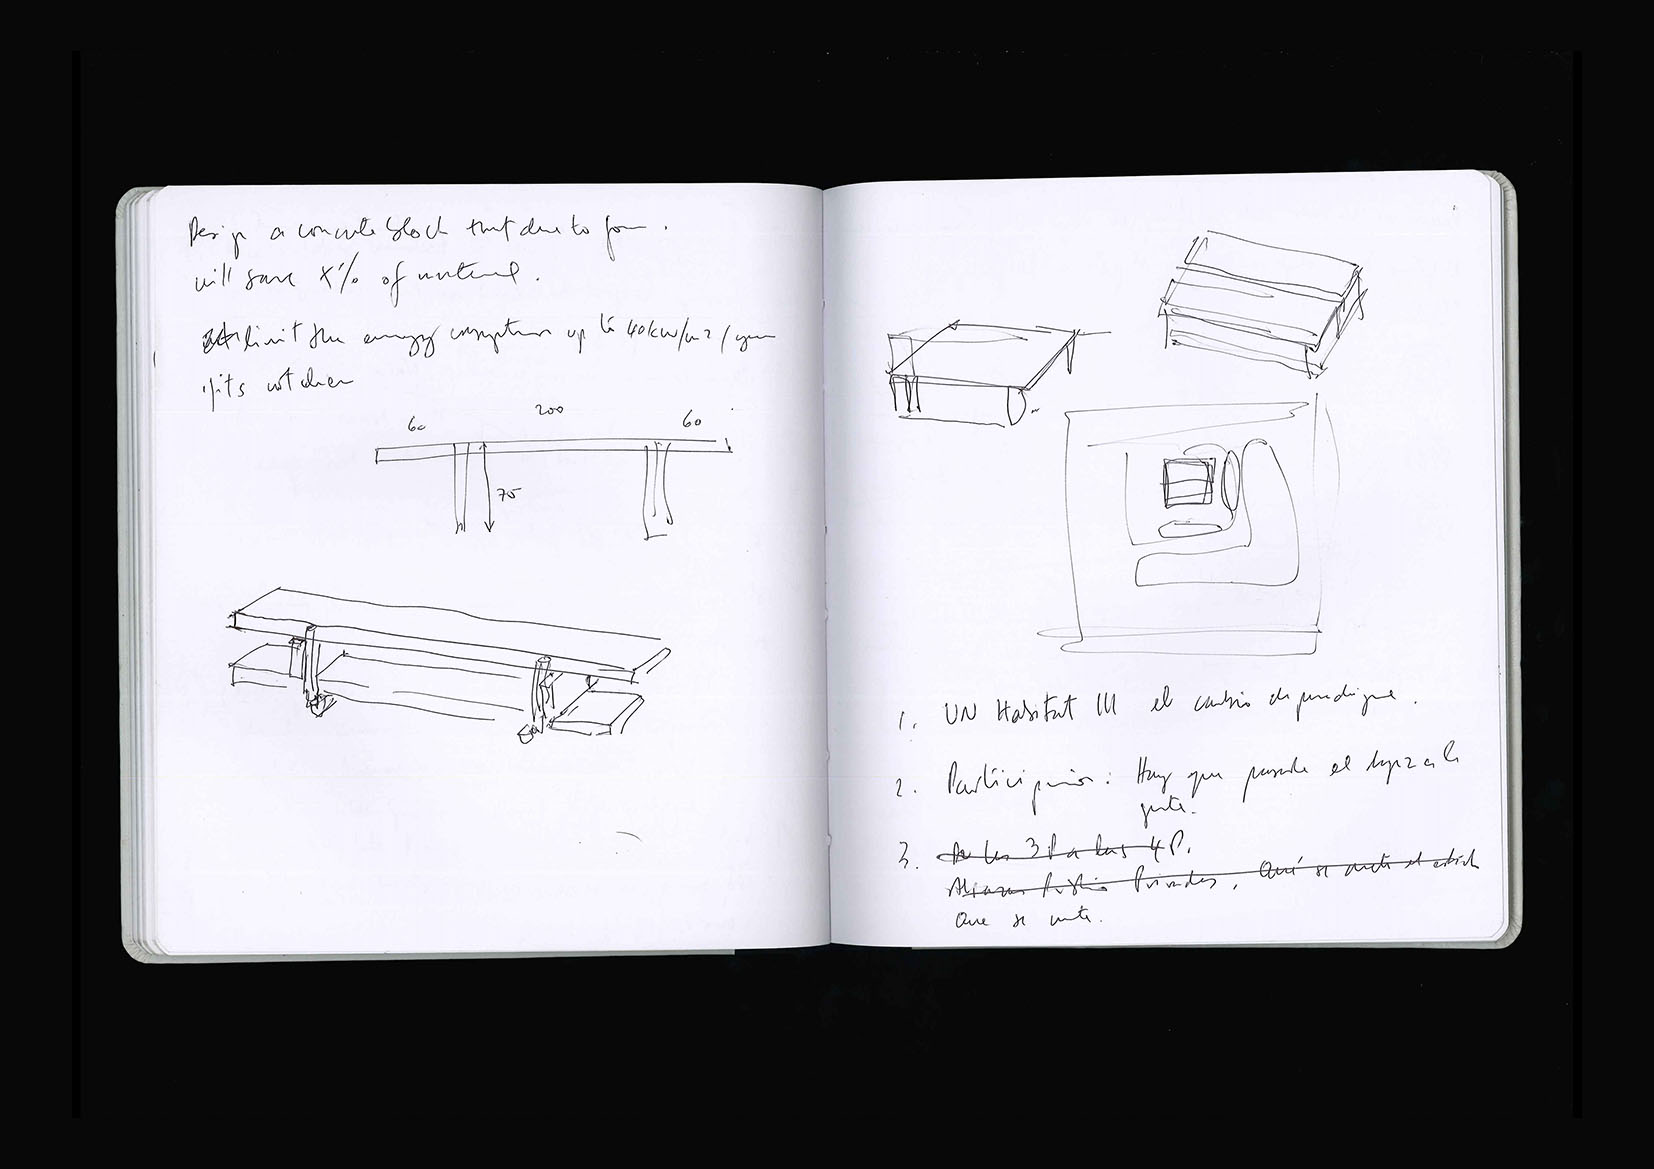 Design a concrete block that due to form.
will save x% of material.
limit the energy consumption up to 40kw/m2/year
if its not clear
60 200 60
75
1. UN Habitat III el cambio de paradigma.
2. Participación: Hay que pasarle el a la
gente.
3. De las 3P a las 4P.
Alianzas Público Privadas. Qué se mete el
Que se mete.